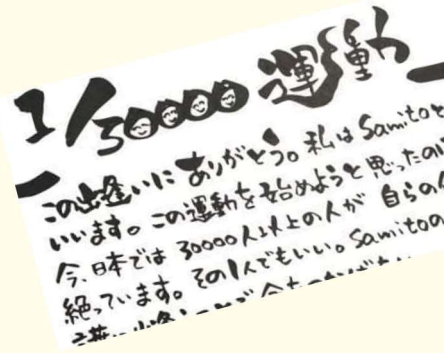 1/30000 運動
この出逢いに ありがとう。私は Samitoと
いいます。この運動を始めようと思ったのは
今、日本では 30000人以上の人が 自らの
絶っています。その1人でもいい。Samitoの